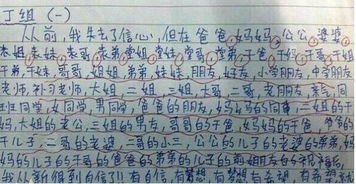 丁组 (一)
从前,我失去了信心,但在爸爸,妈妈,公公,婆婆,
表姐,表妹,表哥,表弟,堂姐,堂妹,堂哥,堂弟,干爸,干妈,干哥,干姐
干弟,干妹,哥哥,姐姐,弟弟,妹妹,朋友,好友,小学朋友,中学朋友
老师,补习老师,大姐,二姐,三姐,大哥,二哥,老朋友,亲戚,同
班同学,女同学,男同学,爸爸的朋友,妈妈的同事,二姐的干
妈,大姐的老公,三姐的男友,哥哥的干爸,妈妈的干爸爸的
干儿子,二哥的老婆,二哥的小三,公公的儿子的老婆的弟弟,妈
妈的儿子的干哥的爸爸的弟弟的儿子的前女朋友的
我从新得到自信了!!有自信,有梦想,有梦想,有希望,有希望